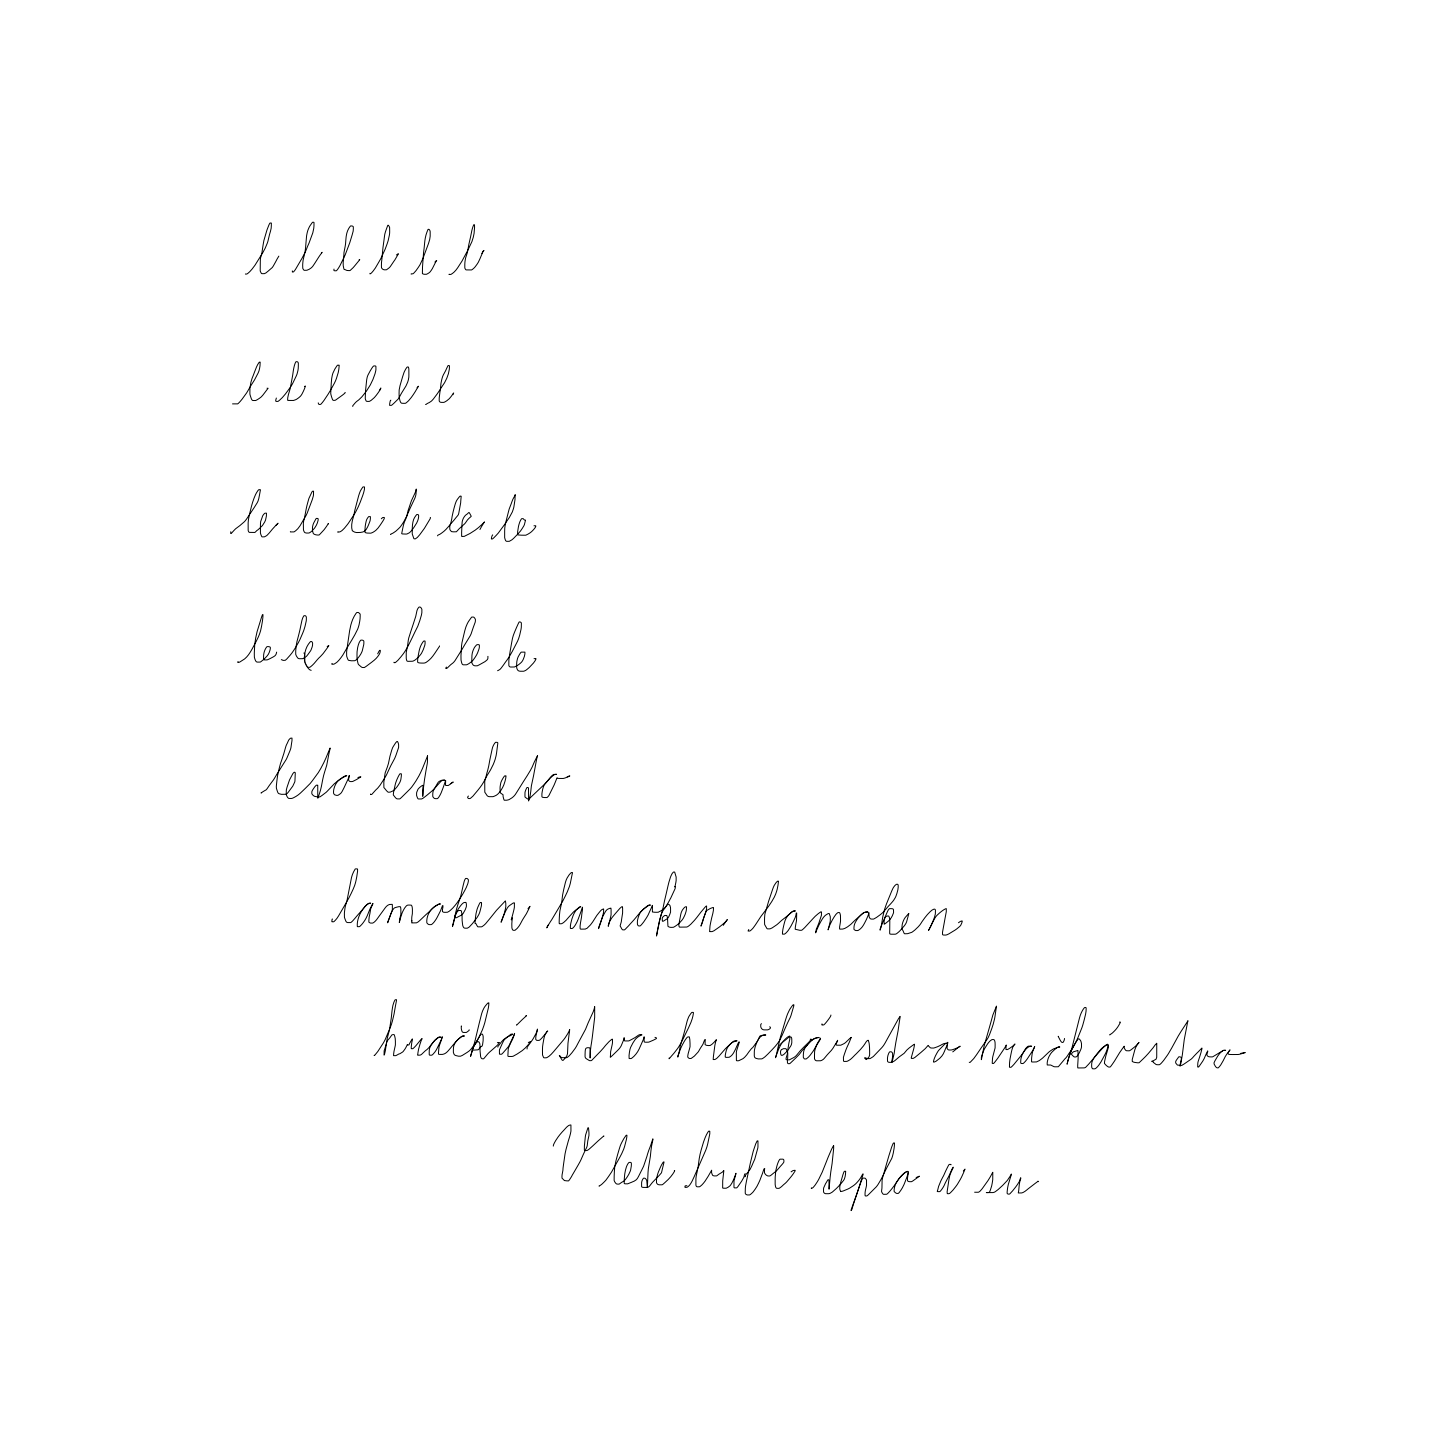 l l l l l l
l l l l l l
le le le le le le
le le le le le le
leto leto leto
lamoken lamoken lamoken
hračkárstvo hračkárstvo hračkárstvo
V lete bube teplo a su